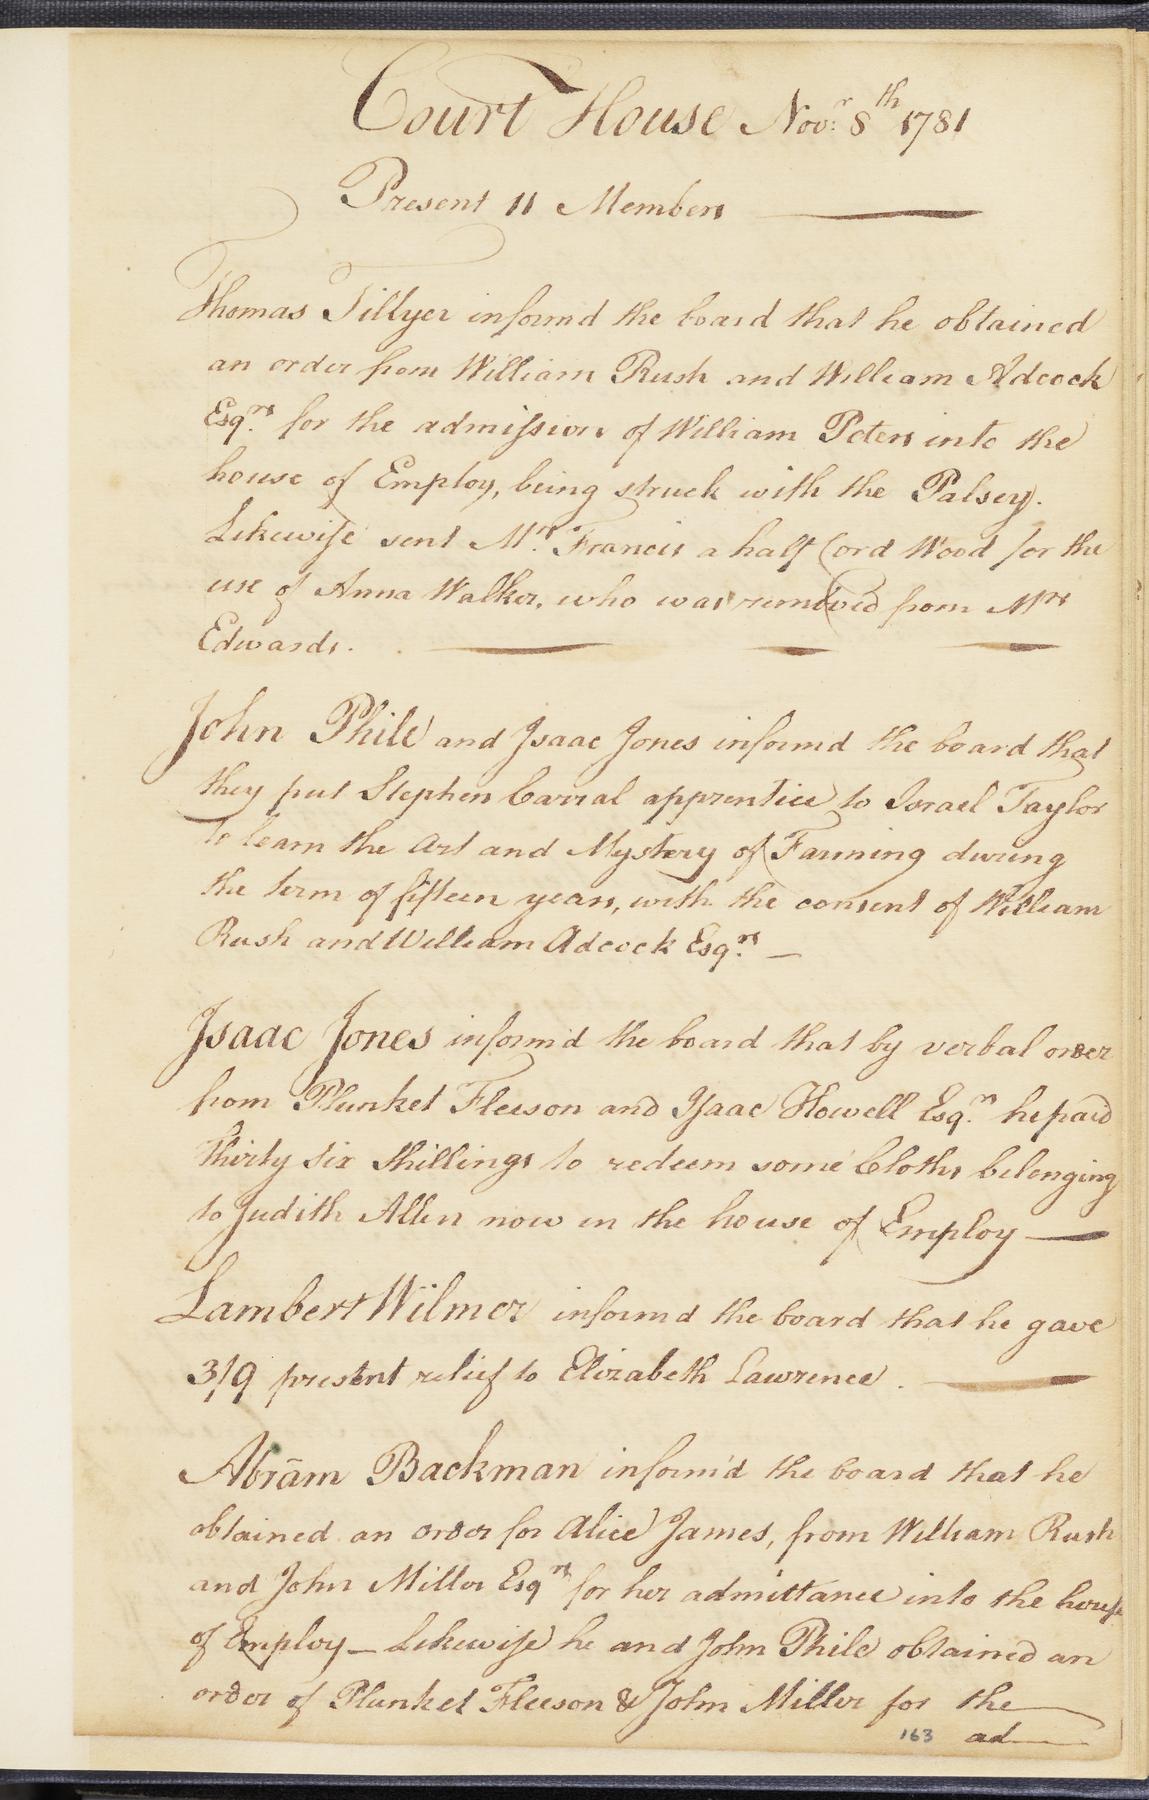 Court House Nov:r 8th 1781
Present 11 Members
Thomas Tillyer informd the board that he obtained
an order from William Rush and William Adcock
Esqrs. for the admission of William Peters into the
house of Employ, being struck with the Palsey.
Likewise sent Mrs. Francis a half Cord Wood for the
use of Anna Walker, who was removed from Mrs
Edwards.
John Phile and Isaac Jones informd the board that
they put Stephen Carral apprentice to Israel Taylor
to learn the Art and Mystery of Farming during
the term of fifteen years, with the consent of William
Rush and William Adcock Esqrs. —
Isaac Jones inform'd the board that by verbal order
from Plunket Fleeson and Isaac Howell Esqrs. he paid
thirty six shillings to redeem some Cloths belonging
to Judith Allen now in the house of Employ —
Lambert Wilmer informd the board that he gave
3/9 present relief to Elizabeth Lawrence.
Abrām Backman inform'd the board that he
obtained an order for Alice James, from William Rush
and John Miller Esqrs for her admittance into the house
of Employ — Likewise he and John Phile obtained an
order of Plunket Fleeson & John Miller for the
163 ad